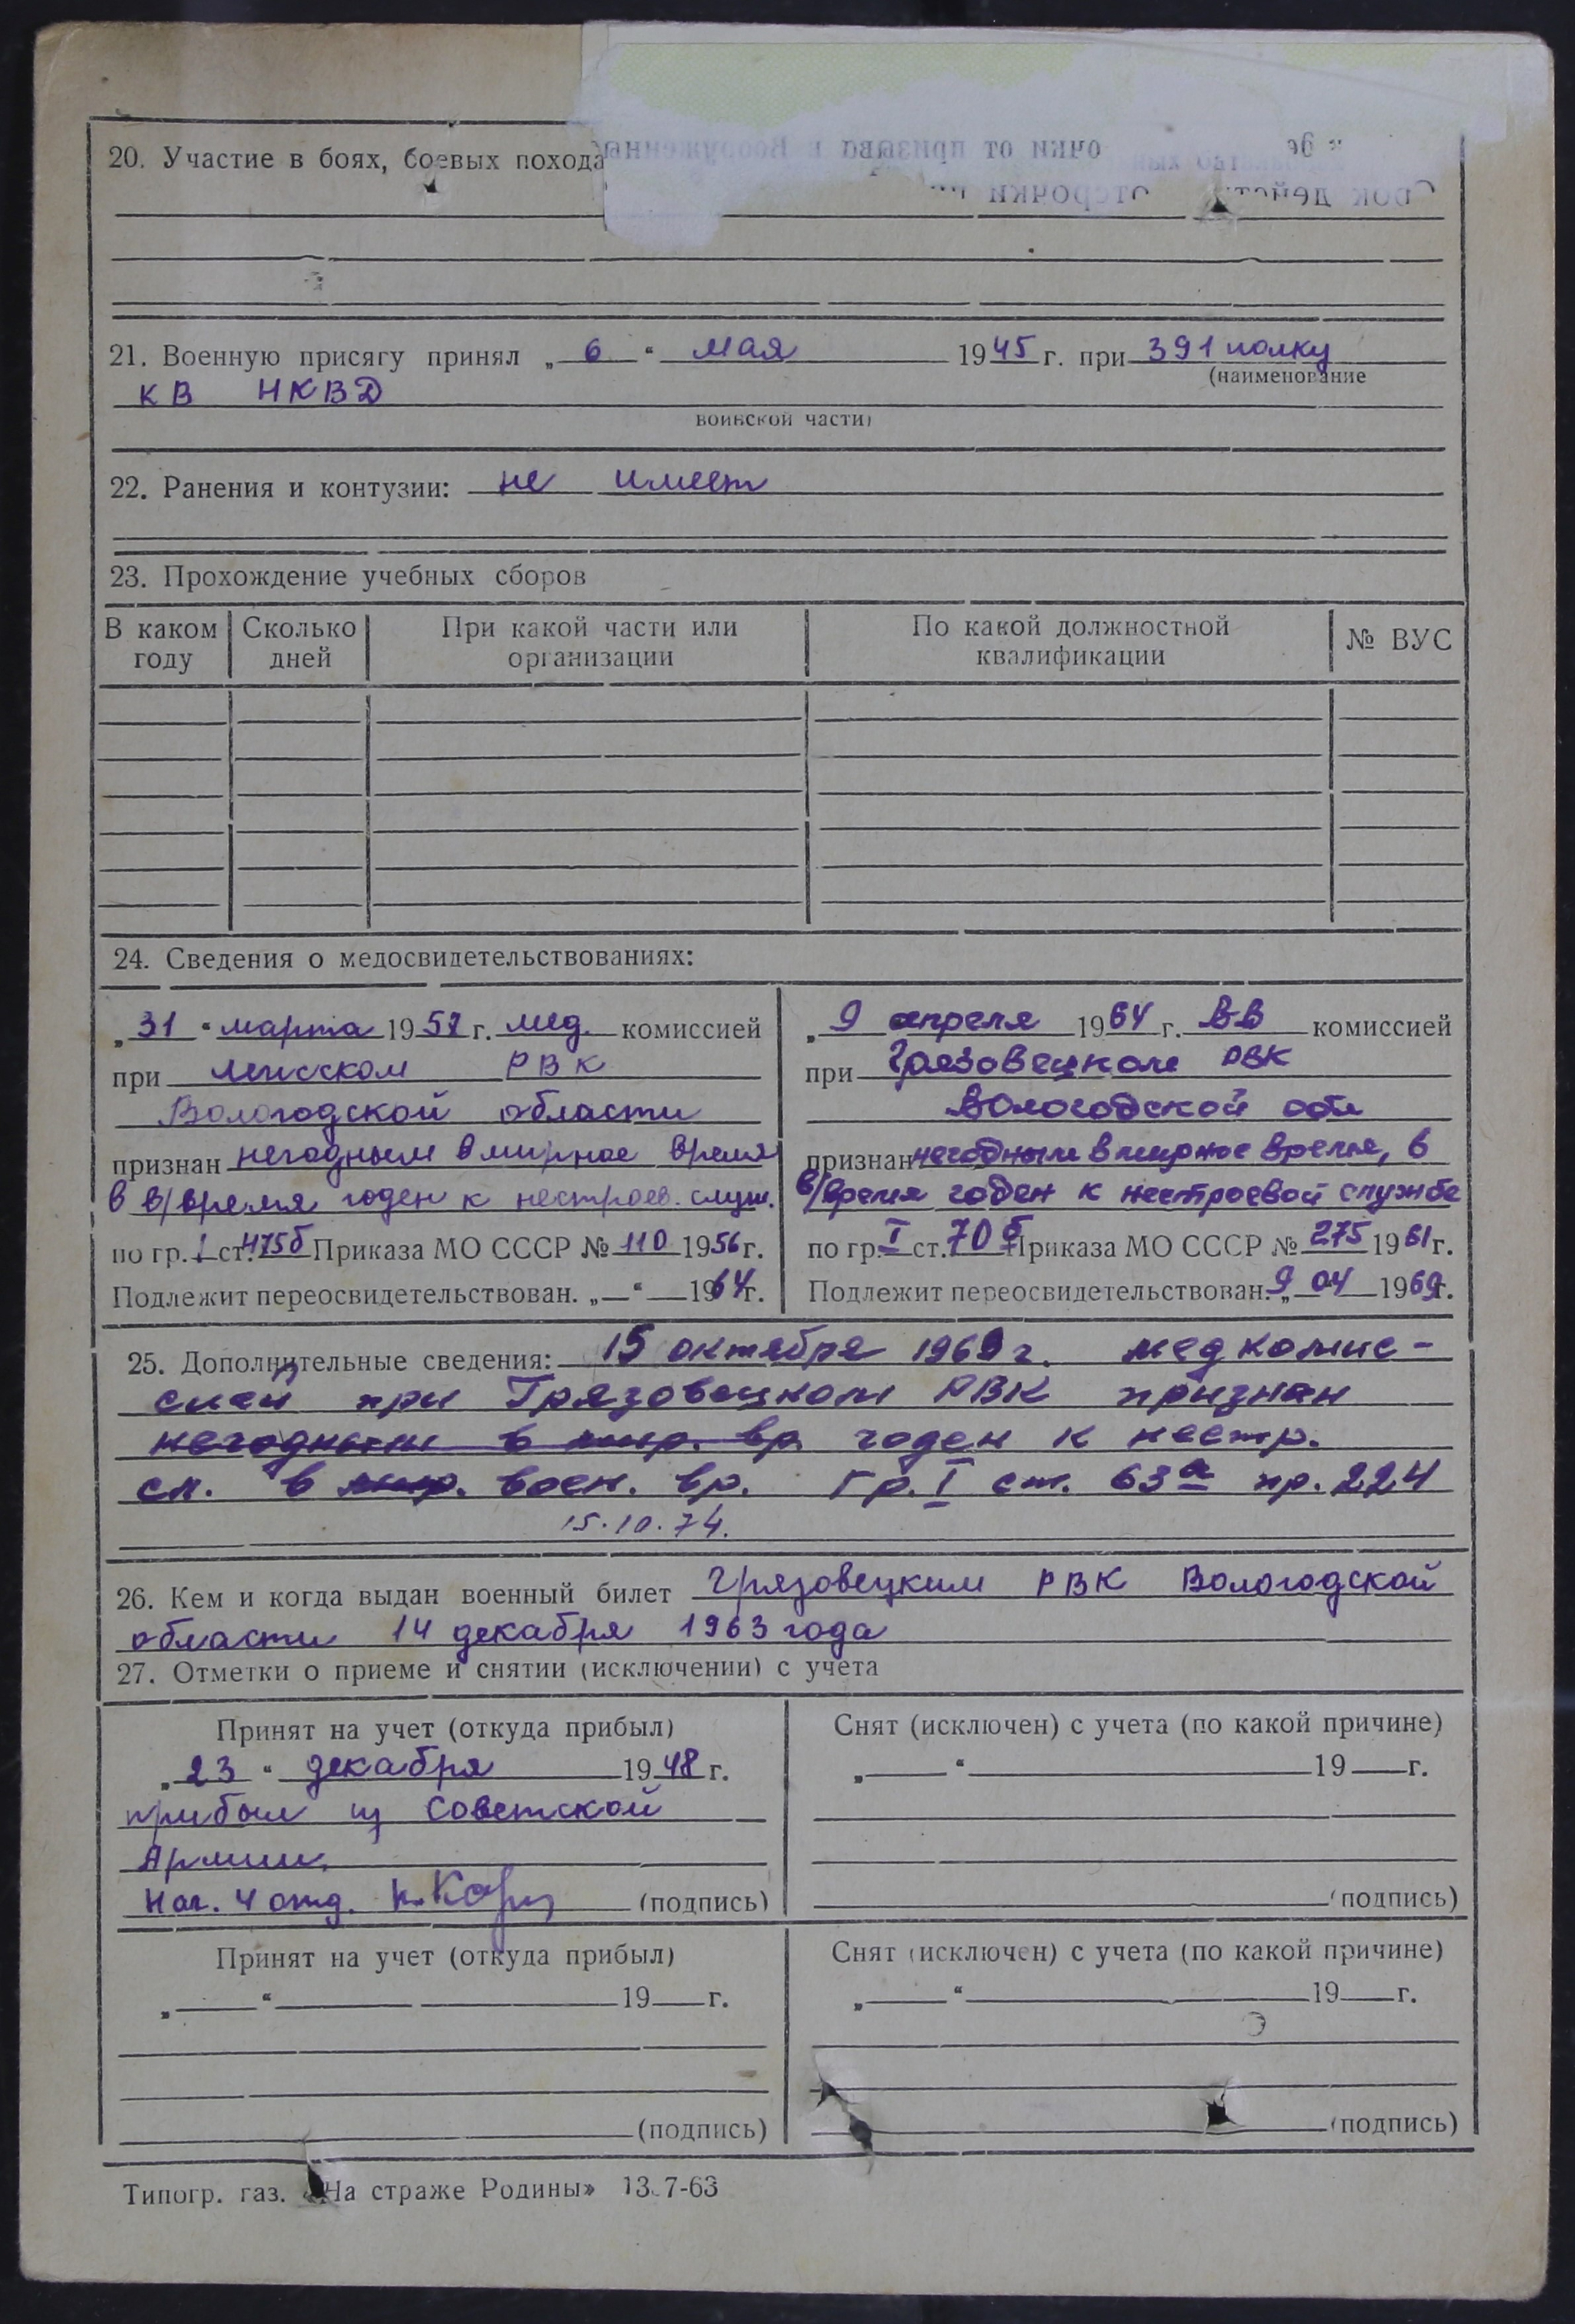 20. Участие в боях, боевых похода
21. Военную присягу принял „ 6 “ мая 1945 г. при 391 полку
(наименование
КВ НКВД
воинской части)
22. Ранения и контузии: не имеет
23. Прохождение учебных сборов
В каком году Сколько дней При какой части или организации По какой должностной квалификации № ВУС
24. Сведения о медосвидетельствованиях:
„31“ марта 1957 г. мед. комиссией
при РВК
Вологодской области
признан негодным в мирное время
в в/время годен к нестроев. служ.
по гр. I ст. 475б Приказа МО СССР № 110 1956 г.
Подлежит переосвидетельствован. „ “ 1964 г.
„ 9 апреля 1964 г. ВВ комиссией
при Грязовецком РВК
Вологодской обл
признан негодным в мирное время, в
в/время годен к нестроевой службе
по гр. I ст. 70 б Приказа МО СССР № 275 1961 г.
Подлежит переосвидетельствован. „9 04 1969 г.
25. Дополнительные сведения: 15 октября 1969 г. медкомис-
сией при Грязовецком РВК признан
негодным в мир. вр. годен к нестр.
сл. в мир. воен. вр. Гр. I ст. 63а пр. 224
15.10.74.
26. Кем и когда выдан военный билет Грязовецким РВК Вологодской
области 14 декабря 1963 года
27. Отметки о приеме и снятии (исключении) с учета
Принят на учет (откуда прибыл)
„23“ декабря 1948 г.
прибыл из Советской
Армии.
Нач. 4 отд. (подпись)
Снят (исключен) с учета (по какой причине)
„ “ 19 г.
(подпись)
Принят на учет (откуда прибыл)
„ “ 19 г.
(подпись)
Снят (исключен) с учета (по какой причине)
„ “ 19 г.
(подпись)
Типогр. газ. «На страже Родины» 13.7-63